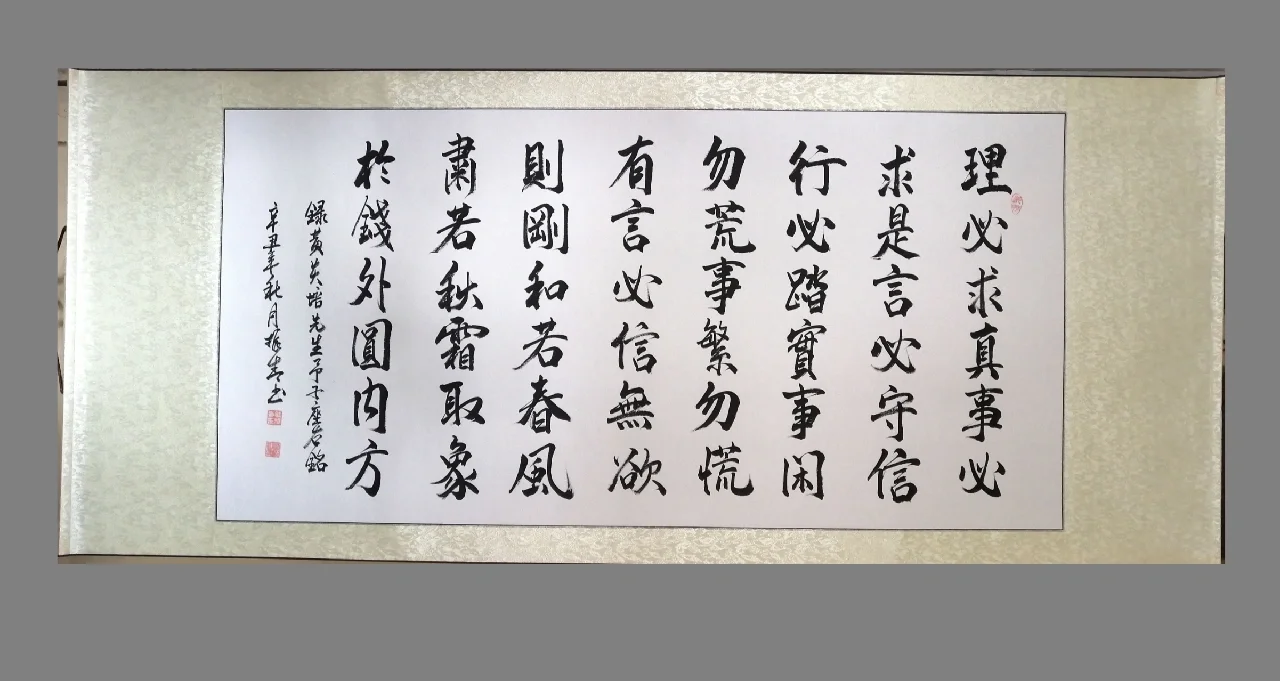 理必求真事必
求是言必守信
行必踏實事閑
勿荒事繁勿慌
有言必信無欲
則剛和若春風
肅若秋霜取象
於錢外圓內方
錄黃炎培先生予子座右銘
辛丑年秋月振書